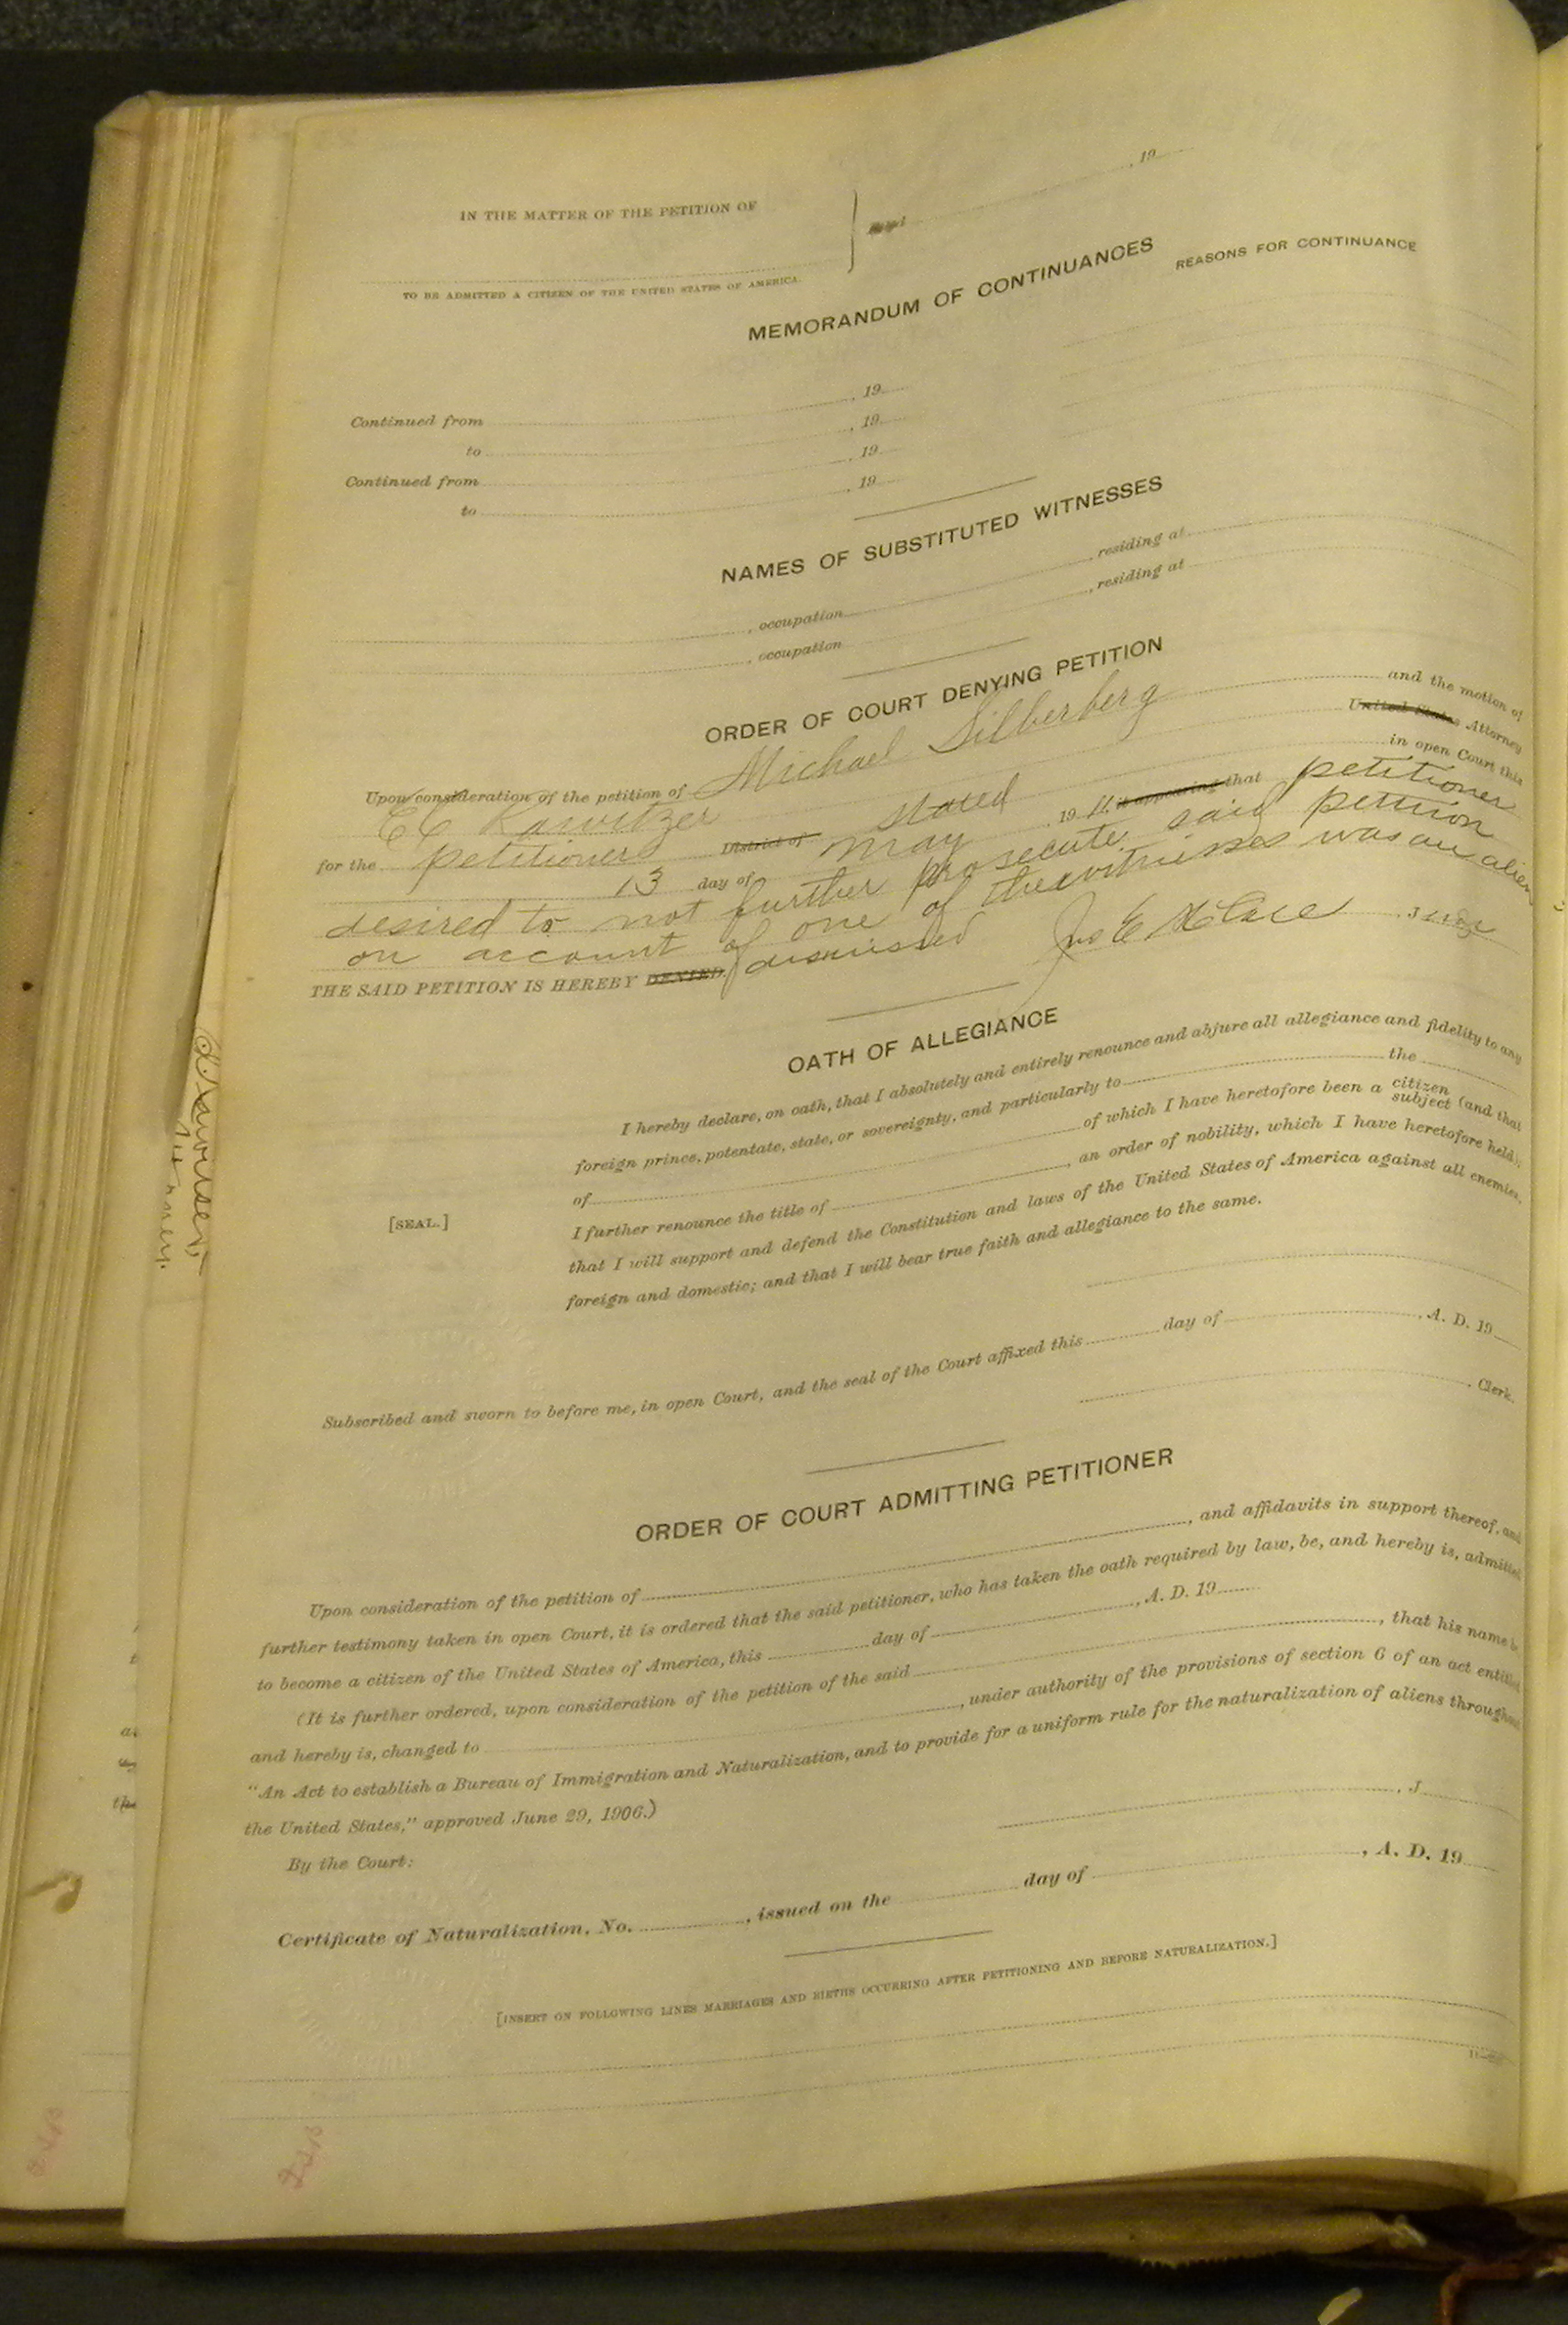 , 19
IN THE MATTER OF THE PETITION OF
TO BE ADMITTED A CITIZEN OF THE UNITED STATES OF AMERICA.
MEMORANDUM OF CONTINUANCES
REASONS FOR CONTINUANCE
Continued from , 19
to , 19
Continued from , 19
to , 19
NAMES OF SUBSTITUTED WITNESSES
, occupation , residing at
, occupation , residing at
ORDER OF COURT DENYING PETITION
Upon consideration of the petition of Michael Silberberg and the motion of
E C United States Attorney
for the petitioner District of stated in open Court this
13 day of May , 19 11. it appearing that petitioner
desired to not further prosecute said petition
on account of one of the witnesses was an alien
THE SAID PETITION IS HEREBY DENIED. dismissed Judge
OATH OF ALLEGIANCE
I hereby declare, on oath, that I absolutely and entirely renounce and abjure all allegiance and fidelity to any
foreign prince, potentate, state, or sovereignty, and particularly to the
of of which I have heretofore been a citizen subject (and that
[SEAL.]
I further renounce the title of , an order of nobility, which I have heretofore held);
that I will support and defend the Constitution and laws of the United States of America against all enemies,
foreign and domestic; and that I will bear true faith and allegiance to the same.
Subscribed and sworn to before me, in open Court, and the seal of the Court affixed this day of , A. D. 19
, Clerk.
ORDER OF COURT ADMITTING PETITIONER
Upon consideration of the petition of , and affidavits in support thereof, and
further testimony taken in open Court, it is ordered that the said petitioner, who has taken the oath required by law, be, and hereby is, admitted
to become a citizen of the United States of America, this day of , A. D. 19
(It is further ordered, upon consideration of the petition of the said , that his name be
and hereby is, changed to , under authority of the provisions of section 6 of an act entitled
"An Act to establish a Bureau of Immigration and Naturalization, and to provide for a uniform rule for the naturalization of aliens throughout
the United States," approved June 29, 1906.)
By the Court:
, J
Certificate of Naturalization, No. , issued on the day of , A. D. 19
[INSERT ON FOLLOWING LINES MARRIAGES AND BIRTHS OCCURRING AFTER PETITIONING AND BEFORE NATURALIZATION.]